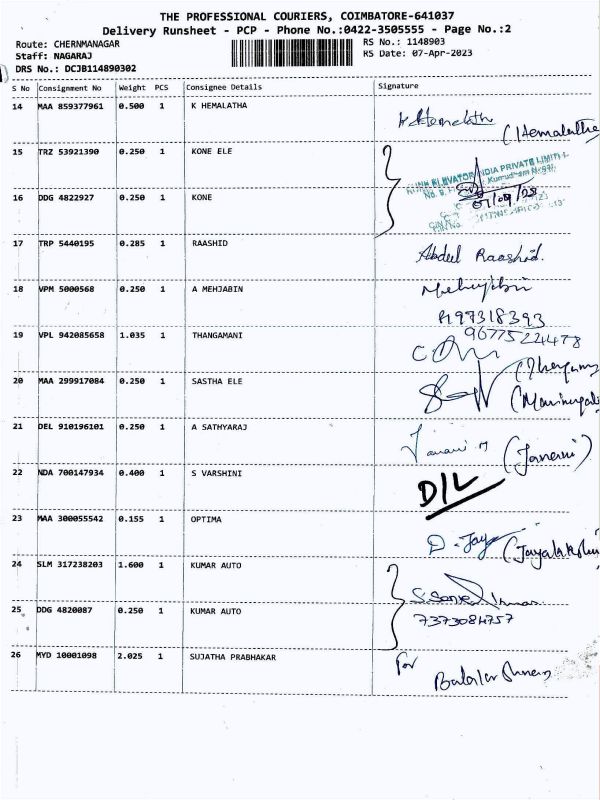 THE PROFESSIONAL COURIERS, COIMBATORE-641037
Delivery Runsheet - PCP - Phone No.:0422-3505555 - Page No.:2
Route: CHERNMANAGAR
Staff: NAGARAJ
DRS No.: DCJB114890302
RS No.: 1148903
RS Date: 07-Apr-2023
S No Consignment No Weight PCS Consignee Details Signature
14 MAA 859377961 0.500 1 K HEMALATHA
(Hemalatha
15 TRZ 53921390 0.250 1 KONE ELE
ELEVATOR INDIA PRIVATE LIMIT
16 DDG 4822927 0.250 1 KONE
17 TRP 5440195 0.285 1 RAASHID Abdul Raashid.
18 VPM 5000568 0.250 1 A MEHJABIN Mehjabin
19 VPL 942085658 1.035 1 THANGAMANI
96775224478
20 MAA 299917084 0.250 1 SASTHA ELE
21 DEL 910196101 0.250 1 A SATHYARAJ Janani M (Janani)
22 NDA 700147934 0.400 1 S VARSHINI D/L
23 MAA 300055542 0.155 1 OPTIMA D. Jaya
24 SLM 317238203 1.600 1 KUMAR AUTO
25 DDG 4820087 0.250 1 KUMAR AUTO 7373084757
26 MYD 10001098 2.025 1 SUJATHA PRABHAKAR For